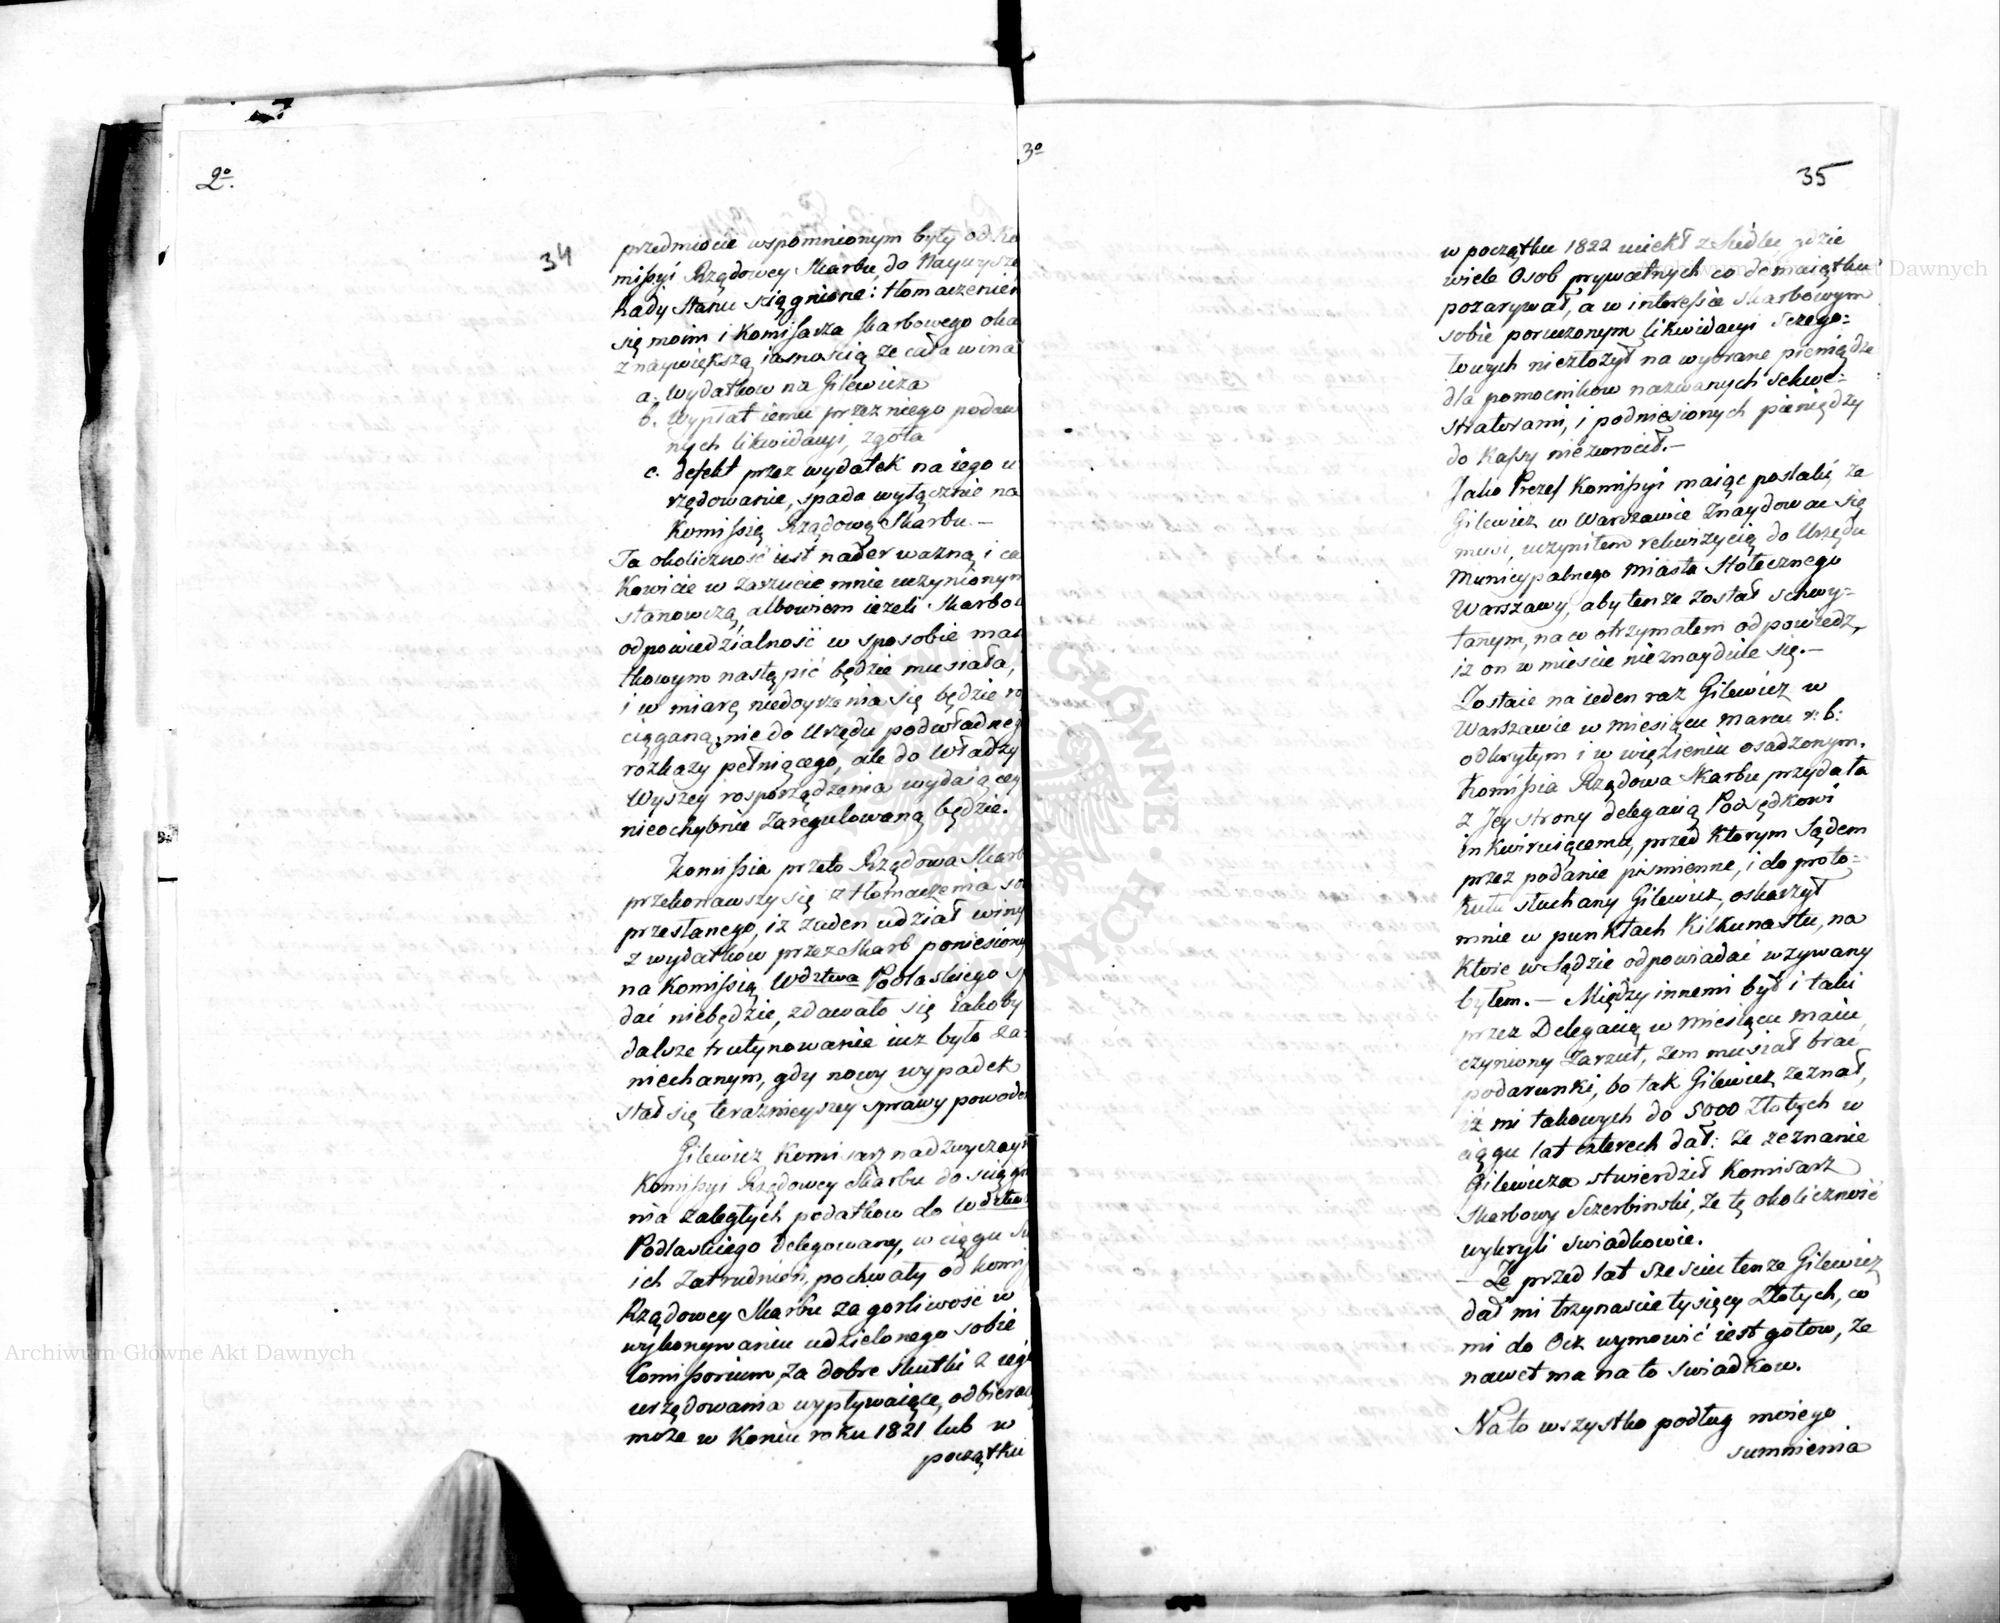 2º.
34
przedmiocie wspomnionym były od Ko
missyi Rządowey Skarbu, do Naywyższe
Rady Stanu sciągnione: tłomaczeniem
się moim i Komissarza Skarbowego oka
z naywiększą iasnością ze cała wina
a. Wydatkow na Gilewicza
b. Wypłat iemu przez niego podaw
nych likwidacyi, zgoła
c. defekt przez wydatek na iego u
rzędowanie, spada wyłącznie na
Komissię Rządową Skarbu. —
Ta okoliczność iest nader ważną i ca
kowicie w zarzucie mnie uczynionym
stanowczą, albowiem ieżeli Skarbo
odpowiedzialność w sposobie mai
tkowym nastąpić będzie musiała,
i w miarę niedoyrzenia się będzie ro
ciąganą; nie do Urzędu podwładneg
rozkazy pełniącego, ale do Władzy
Wyszey rosporządzenia wydaiącey
nieochybnie zaregulowaną będzie.
Komissia przeto Rządowa Skarb
przekonawszy się z tłomaczenia so
przesłanego, iż żaden udział winy
z wydatkow przez Skarb poniesiony
na Komissią Wdztwa Podlaskiego sp
dać niebędzie, zdawało się iakoby
dalsze trutynowanie iuż było za=
niechanym, gdy nowy wypadek
stał się teraznieyszey sprawy powode
Gilewicz Komisarz nadzwyczayn
Komissyi Rządowey Skarbu do sciągn
nia zaległych podatkow do Wdztwa
Podlaskiego delegowany, w ciągu sw
ich zatrudnień, pochwały od Komis
Rządowey Skarbu za gorliwość w
wykonywaniu udzielonego sobie
Comissorium, za dobre skutki z ieg
urzędowania wypływaiące, odbierał
może w Końcu roku 1821 lub w
początku
3º
35
w początku 1822 uciekł z Siedlec, gdzie
wiele Osob prywatnych co do maiątku
pozarywał, a w interessie Skarbowym
sobie poruczonym likwidacyi Szczego=
łowych niezłożył na wybrane pieniądze
dla pomocnikow nazwanych Sekwe=
stratorami, i podniesionych pieniędzy
do Kassy niezwrocił. —
Jako Prezes Komissyi maiąc poszlaki że
Gilewicz w Warszawie znaydować się
musi, uczyniłem rekwizycią do Urzędu
Municypalnego Miasta Stołecznego
Warszawy, aby tenże został schwy=
tanym, na co otrzymałem odpowiedz,
iż on w mieście nieznayduie się. —
Zostaie na ieden raz Gilewicz w
Warszawie w miesiącu marcu r: b:
odkrytym i w więzieniu osadzonym.
Komissia Rządowa Skarbu przydała
z Jey strony delegacią Podsędkowi
inkwiruiącemu, przed ktorym Sądem
przez podanie pismienne, i do proto=
kułu słuchany Gilewicz, oskarzył
mnie w punktach Kilkunastu, na
ktore w Sądzie odpowiadać wzywany
byłem. — Między innemi był i taki
przez Delegacią w miesiącu Maiu
czyniony zarzut, żem musiał brać
podarunki, bo tak Gilewicz zeznał,
iż mi takowych do 5000 Złotych w
ciągu lat czterech dał: że zeznanie
Gilewicza stwierdził Komisarz
Skarbowy Szczerbinski, że tę okoliczność
wykryli swiadkowie.
— Że przed lat sześciu tenże Gilewicz
dał mi trzynascie tysięcy Złotych, co
mi do Ocz wymowić iest gotow, że
nawet ma na to swiadkow.
Na to wszystko podług moiego
sumnienia
Archiwum Główne Akt Dawnych
Archiwum Główne Akt Dawnych